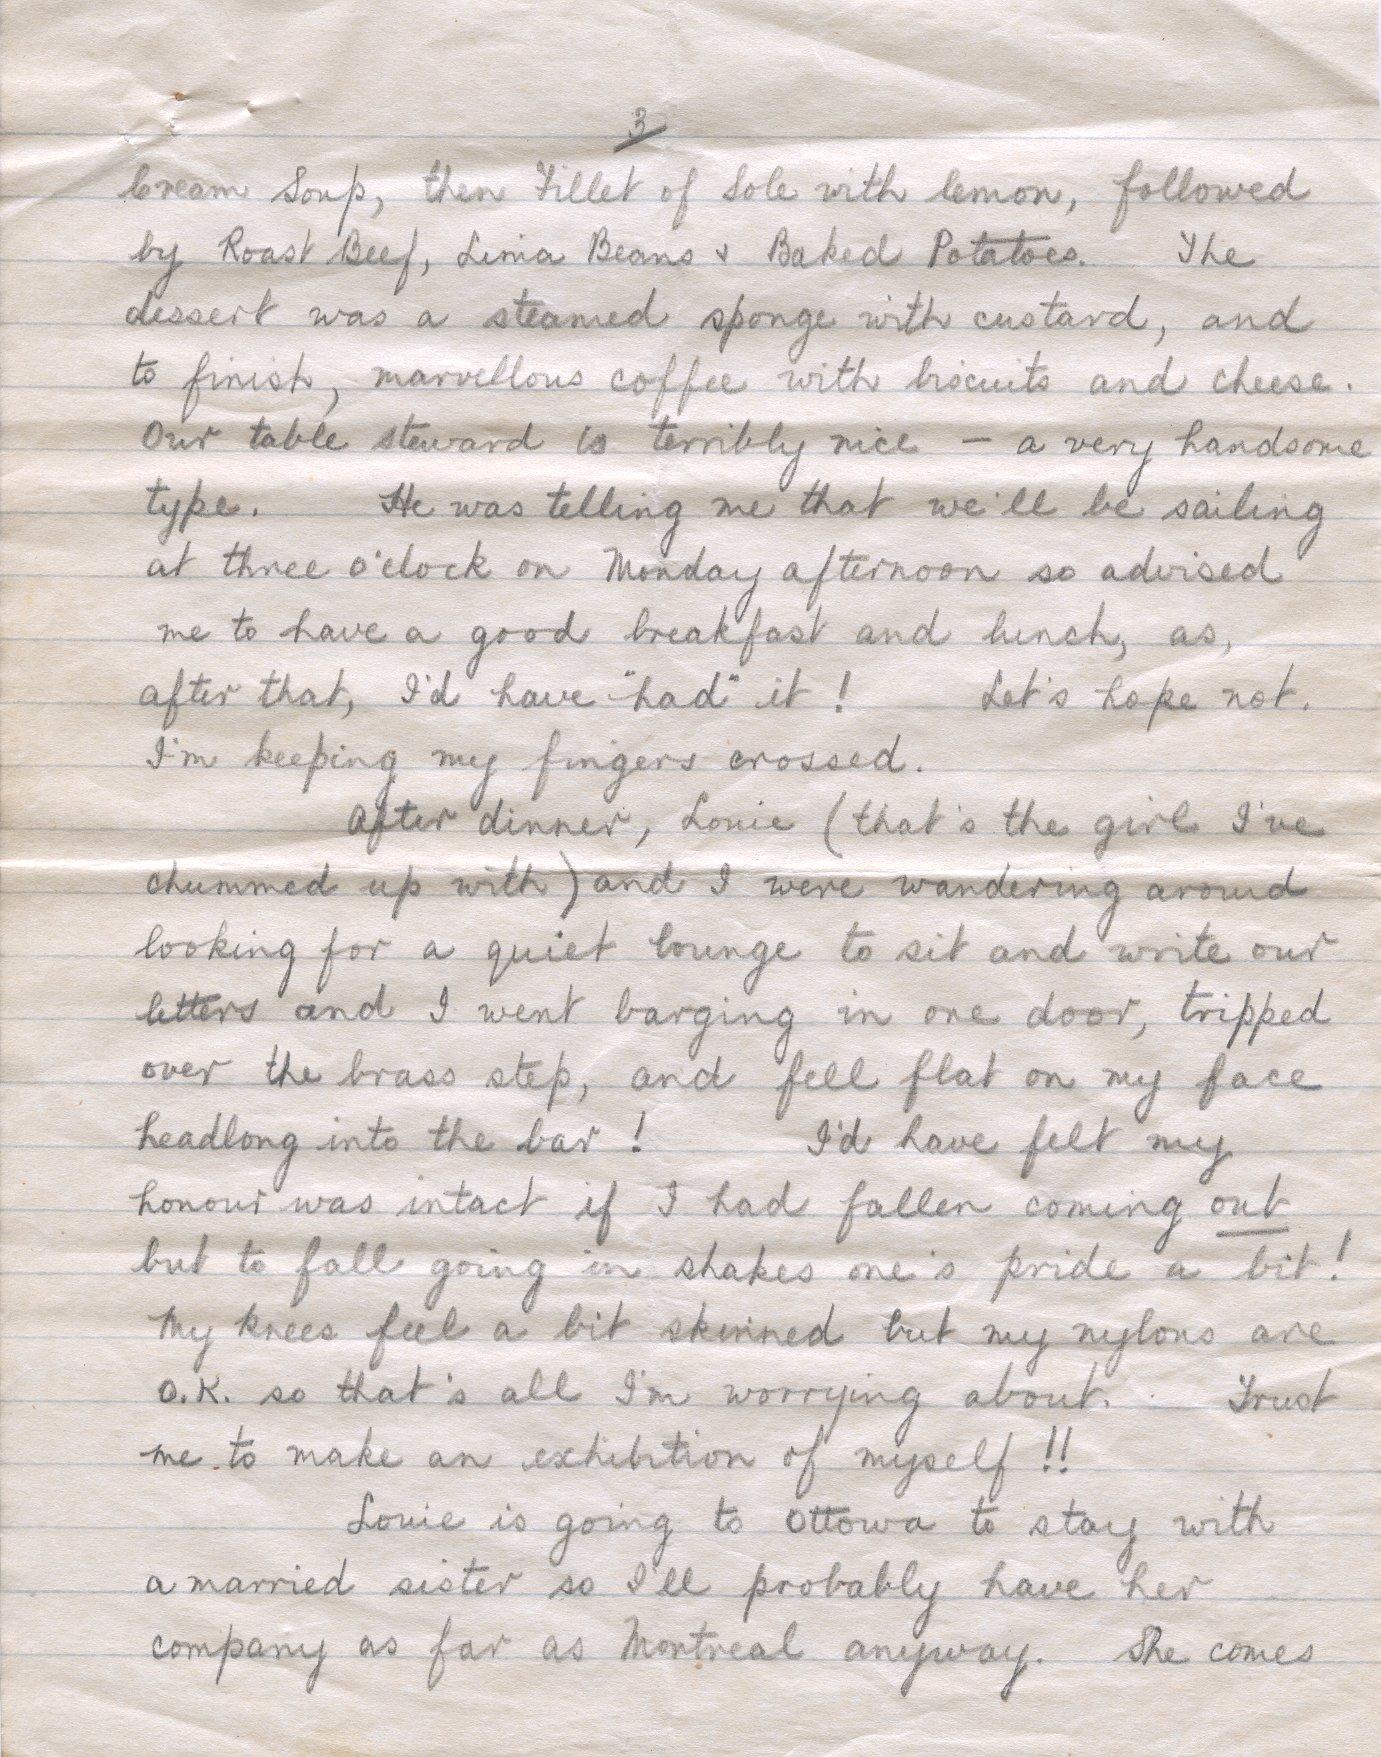 3
Cream Soup, then Fillet of Sole with lemon, followed
by Roast Beef, Lima Beans & Baked Potatoes. The
dessert was a steamed sponge with custard, and
to finish, marvellous coffee with biscuits and cheese.
Our table steward is terribly nice – a very handsome
type. He was telling me that we'll be sailing
at three o'clock on Monday afternoon so advised
me to have a good breakfast and lunch, as,
after that, I'd have "had" it! Let's hope not.
I'm keeping my fingers crossed.
After dinner, Louie (that's the girl I've
chummed up with) and I were wandering around
looking for a quiet lounge to sit and write our
letters and I went barging in one door, tripped
over the brass step, and fell flat on my face
headlong into the bar! I'd have felt my
honour was intact if I had fallen coming out
but to fall going in shakes one's pride a bit!
My knees feel a bit skinned but my nylons are
O.K. so that's all I'm worrying about. Trust
me to make an exhibition of myself!!
Louie is going to Ottowa to stay with
a married sister so I'll probably have her
company as far as Montreal anyway. She comes